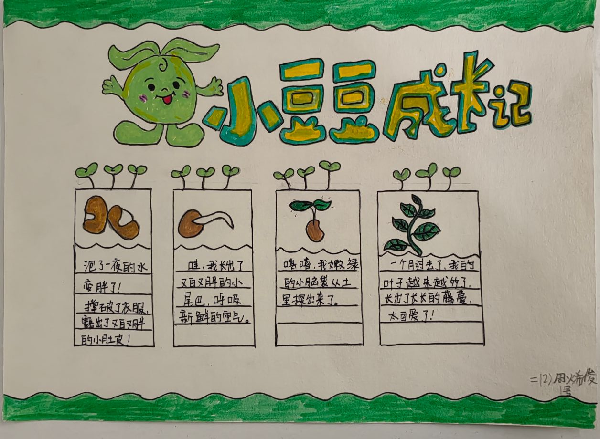 小豆豆成长记
泡了一夜的水
变胖了!
撑破了衣服,
露出了又白又胖
的小肚皮!
哇,我长出了
又白又胖的小
尾巴,呼吸
新鲜的空气。
嘻嘻,我嫩绿
的小脑袋从土
里探出来了。
一个月过去了,我的
叶子越来越多了,
长出了长长的藤蔓,
太可爱了!
二(2)周